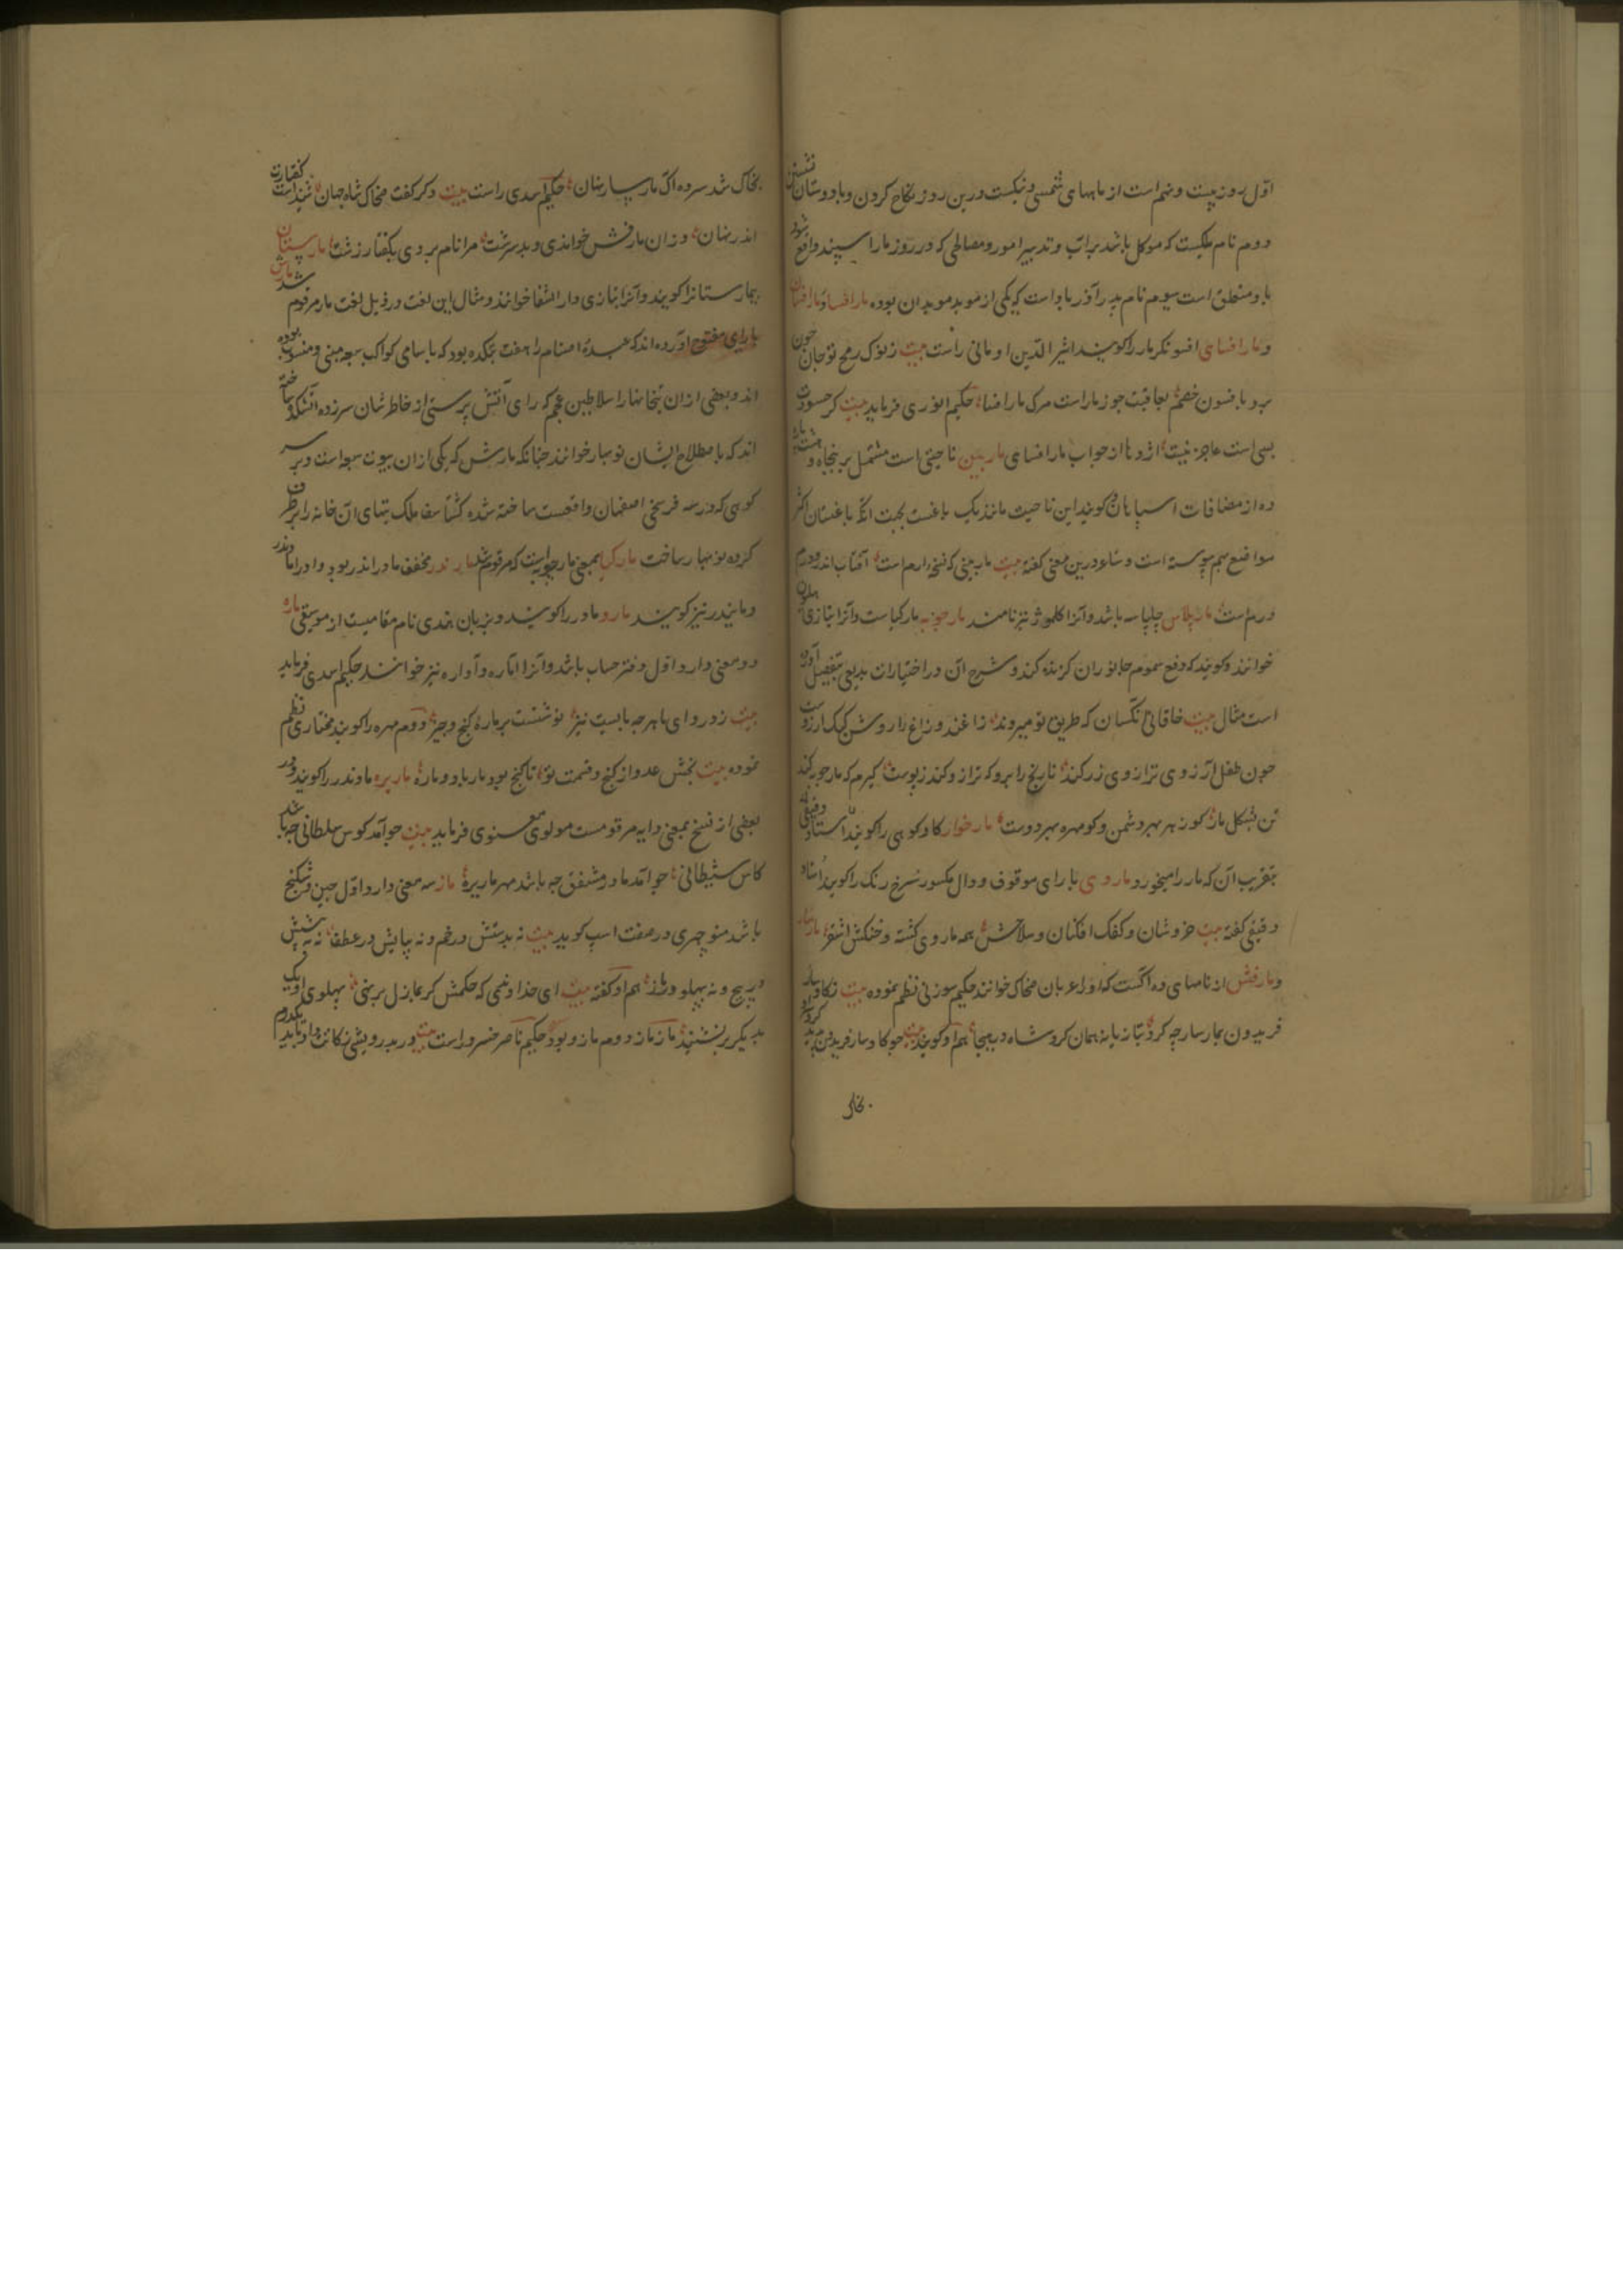 اول روز بیست و نهم است از ماههای شمسی و نیکست درین روز نکاح کردن و با دوستان نشستن
دوم نام ملکیست که موکل باشد بر آب و تدبیر امور و مصالحی که در روز مار اسپند واقع شود
باو متعلق است سیوم نام پدر آذرباد است که یکی از موبد موبدان بوده مار افسا و مار افسان
و مار افسای افسونکر مار را کویند اثیر الدین اومانی راست بیت ز نوک رمح تو جان چون
برد بافسون خصم بعاقبت چو ز مار است مرک مار افسا حکیم انوری فرماید بیت کر حسودت
بسی است عاجز نیست اژدها از جواب مار افسای ماربین ناحیتی است مشتمل بر پنجاه و هشت پاره
ده از مضافات اسپاهان و کویند این ناحیت مانند یک باغست بجهت آنکه باغستان اکثر
مواضع بهم پیوسته است و شاعر درین معنی کفته بیت ماربینی که نسخه ارم است آفتاب اندرو درم
درم است مار پلاس چلپاسه باشد و آنرا کلموژ نیز نامند مار چوبه مار کیاست و آنرا بتازی هلیون
خوانند و کویند که دفع سموم جانوران کزنده کند و شرح آن در اختیارات بدیعی بتفصیل آورده
است مثال بیت خاقانی آنکسان که طریق تو میروند زاغند و زاغ را روش کبک آرزوست
چون طفل کارزوی ترازوی زر کند نارنج را برو که ترازو کند ز پوست کیرم که مار چوبه کند
تن بشکل مار کو زهر بهر دشمن و کو مهره بهر دوست مار خوار کاو کوهی را کویند استاد دقیقی
بتقریب آن که مار را میخورد ماردی با رای موقوف و دال مکسور سرخ رنک را کویند استاد
دقیقی کفته بیت خروشان و کفک افکنان و سلاحش همه ماردی کشته و خنکش اشقر مارسار
و مار فش از نامهای ده اکست که او را عربان ضحاک خوانند حکیم سوزنی نظم نموده بیت زکاوسار
فریدون بمارسار چه کرد بتازیانه همان کرد شاه در هیجا هم او کوید بیت چو کاوسار فریدون پدید کردار
بخاک
بخاک شد سر ده اک مارسار نهان حکیم اسدی راست بیت دکر کفت ضحاک شاه جهان شنید است کفتارت
اندر نهان وزان مار فش خواندی و بدسرشت مرا نام بردی بکفتار زشت مارستان
بیمارستانرا کویند و آنرا بتازی دار الشفا خوانند و مثال این لغت در ذیل لغت مار مرقوم شد مارش
با رای مفتوح آورده اند که عبده اصنام را هفت بتکده بود که باسامی کواکب سبعه مبنی و منسوب بوده
اند و بعضی از آن بتخانها را سلاطین عجم که رای آتش پرستی از خاطرشان سر زده آتشکده ساخته
اند که باصطلاح ایشان نوبهار خوانند چنانکه مارش که یکی از آن بیوت سبعه است و بر سر
کوهی که در سه فرسخی اصفهان واقعست ساخته شده کشتاسف ملک بتهای آن خانه را برطرف
کرده نوبهار ساخت مار کیا بمعنی مار چوبه است که مرقوم شد مارندر مخفف مادر اندر بود و او را مادندر
و مایندر نیز کویند مارو مادر را کویند و بزبان هندی نام مقامیست از موسیقی ماره
دو معنی دارد اول دفتر حساب باشد و آنرا اماره و آواره نیز خوانند حکیم اسدی فرماید
بیت ز درو ای با هر چه بایست نیز نوشتست بر ماره کنج و چیز دوم مهره را کویند مختاری نظم
نموده بیت بخش عدو از کنج و قسمت تو تا کنج بود مار باد و ماره ماریره مادندر را کویند و در
بعضی از نسخ بمعنی دایه مرقومست مولوی معنوی فرماید بیت چو آمد کوس سلطانی چه باشد
کاس شیطانی چو آمد مادر مشفق چه باشد مهر ماریره ماز سه معنی دارد اول چین و شکنج
باشد منوچهری در صفت اسپ کوید بیت نه بدستش در خم و نه بپایش در عطف نه به پشتش
در پیچ و نه پهلو در ماز هم او کفته بیت ای خداوندی که حکمش کر بمازل بر نهی پهلوی او یک
بدیکر بر نشیند ماز ماز دوم مازو بود حکیم ناصر خسرو راست بیت